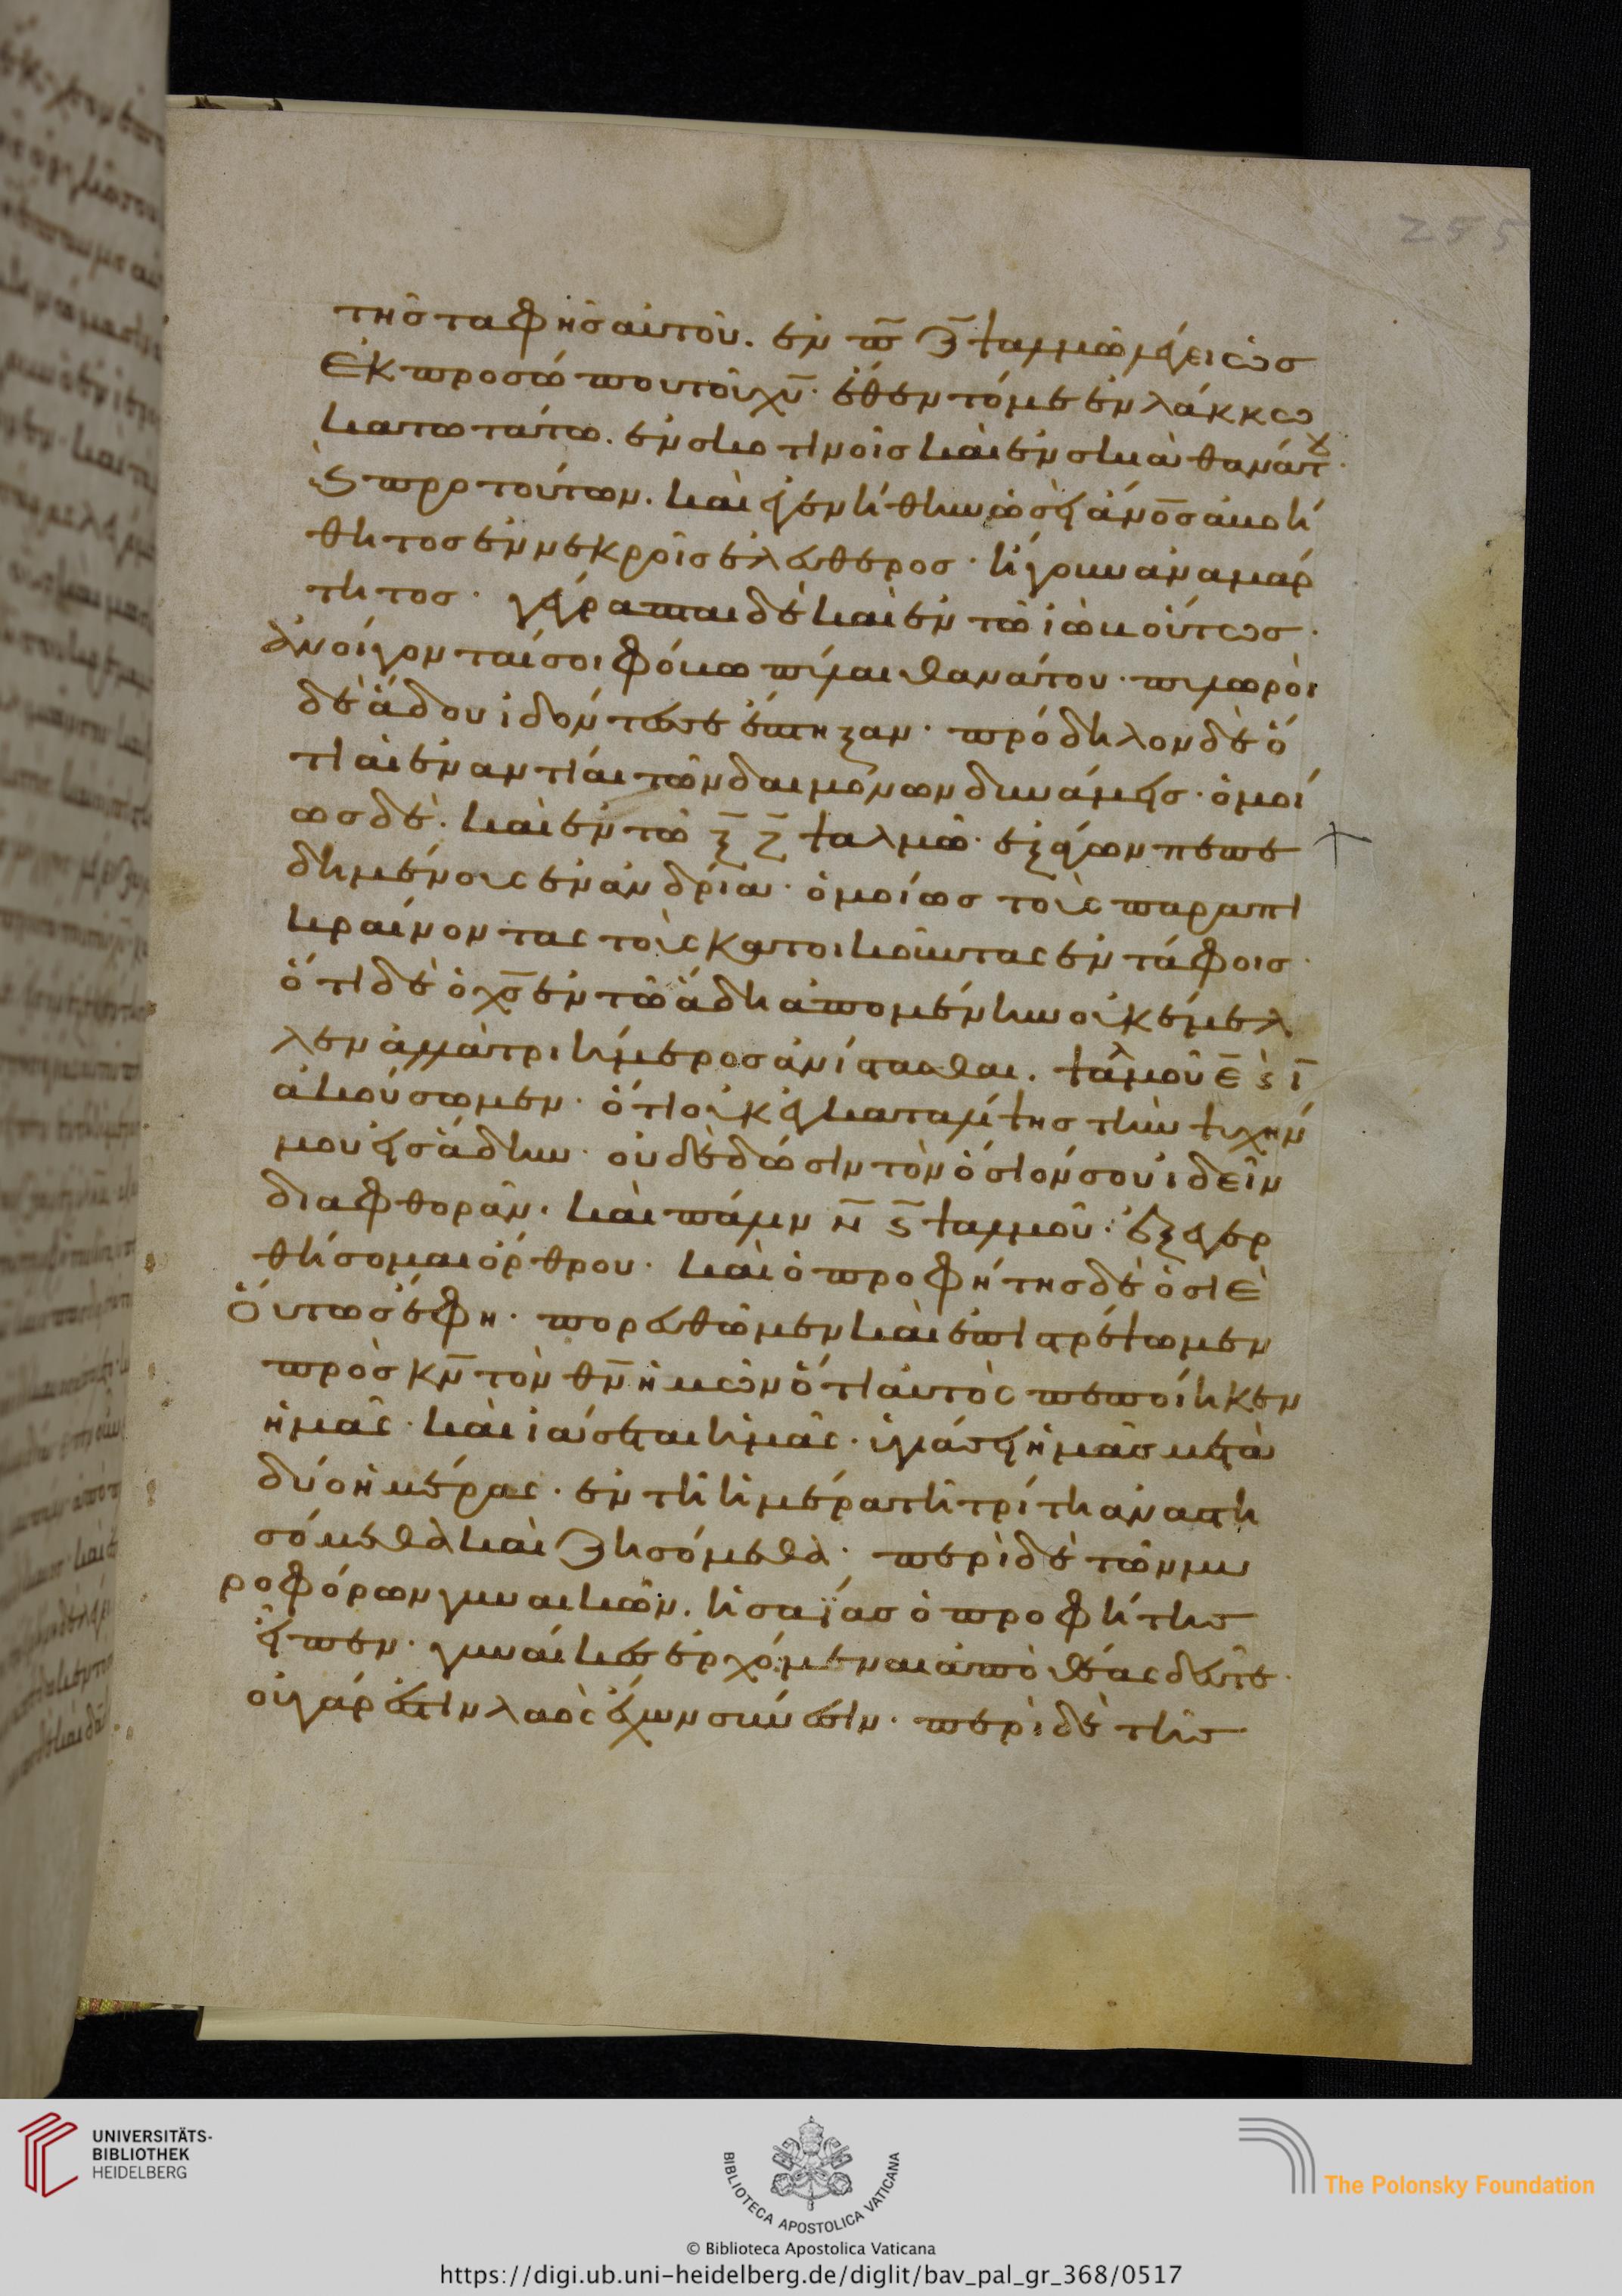 255
τῆς ταφῆς αὐτοῦ. ἐν π̅ζ̅ ψαλμῶ λέγει ὡς
ἐκ προσώπου τοῦ χ̅υ̅· ἔθεντό με ἐν λάκκω
κατωτάτω. ἐν σκοτινοῖς καὶ ἐν σκιᾶ θανάτου·
πρὸ τούτων. καὶ ἐγενήθην ὡσεὶ ἄν̅ο̅ς ἀβοή
θητος ἐν νεκροῖς ἐλεύθερος· ἤγουν ἀναμάρ
τητος· γέγραπται δὲ καὶ ἐν τῶ ἰὼβ οὕτως·
ἀνοίγονταί σοι φόβω πύλαι θανάτου· πυλωροὶ
δὲ ἅδου ἰδόντές σε ἔπτηξαν· πρόδηλον δὲ ὅ
τι αἱ ἐναντίαι τῶν δαιμόνων δυνάμεις· ὁμοί
ως δὲ. καὶ ἐν τῶ ξ̅ζ̅ ψαλμῶ· ἐξάγων πεπε
δημένους ἐν ἀνδρία· ὁμοίως τοὺς παραπι
κραίνοντας τοὺς κατοικοῦντας ἐν τάφοις·
ὅτι δὲ ὁ χ̅ς̅ ἐν τῶ ἅδη ἀπομένην οὐκ ἔμελ
λεν ἀλλὰ τριήμερος ἀνίστασθαι. ψαλμοῦ ε̅ ι̅
ἀκούσωμεν· ὅτι οὐκ ἐγκαταλείψης τὴν ψυχήν
μου εἰς ἅδην· οὐδὲ δώσιν τὸν ὅσιόν σου ἰδεῖν
διαφθοράν. καὶ πάλιν ν̅ς̅ ψαλμοῦ· ἐξεγερ
θήσομαι ὄρθρου· καὶ ὁ προφήτης δὲ ὁσιὲ
οὕτως ἔφη· πορευθῶμεν καὶ ἐπιστρέψωμεν
πρὸς κ̅ν̅ τὸν θ̅ν̅ ἡμῶν ὅτι αὐτὸς πεποίηκεν
ἡμᾶς· καὶ ἰάσεται ἡμᾶς· ὑγιάσει ἡμᾶς μετὰ
δύο ἡμέρας· ἐν τῆ ἡμέρα τῆ τρίτη ἀναστη
σόμεθα καὶ ζησόμεθα· περὶ δὲ τῶν μυ
ροφόρων γυναικῶν. ἡσαΐας ὁ προφήτης
εἶπεν· γυναῖκες ἐρχόμεναι ἀπὸ θέας δεῦτε·
οὐ γάρ ἐστιν λαὸς ἔχων σύνεσιν· περὶ δὲ τῆς
UNIVERSITÄTS-
BIBLIOTHEK
HEIDELBERG
BIBLIOTECA APOSTOLICA VATICANA
The Polonsky Foundation
© Biblioteca Apostolica Vaticana
https://digi.ub.uni-heidelberg.de/diglit/bav_pal_gr_368/0517